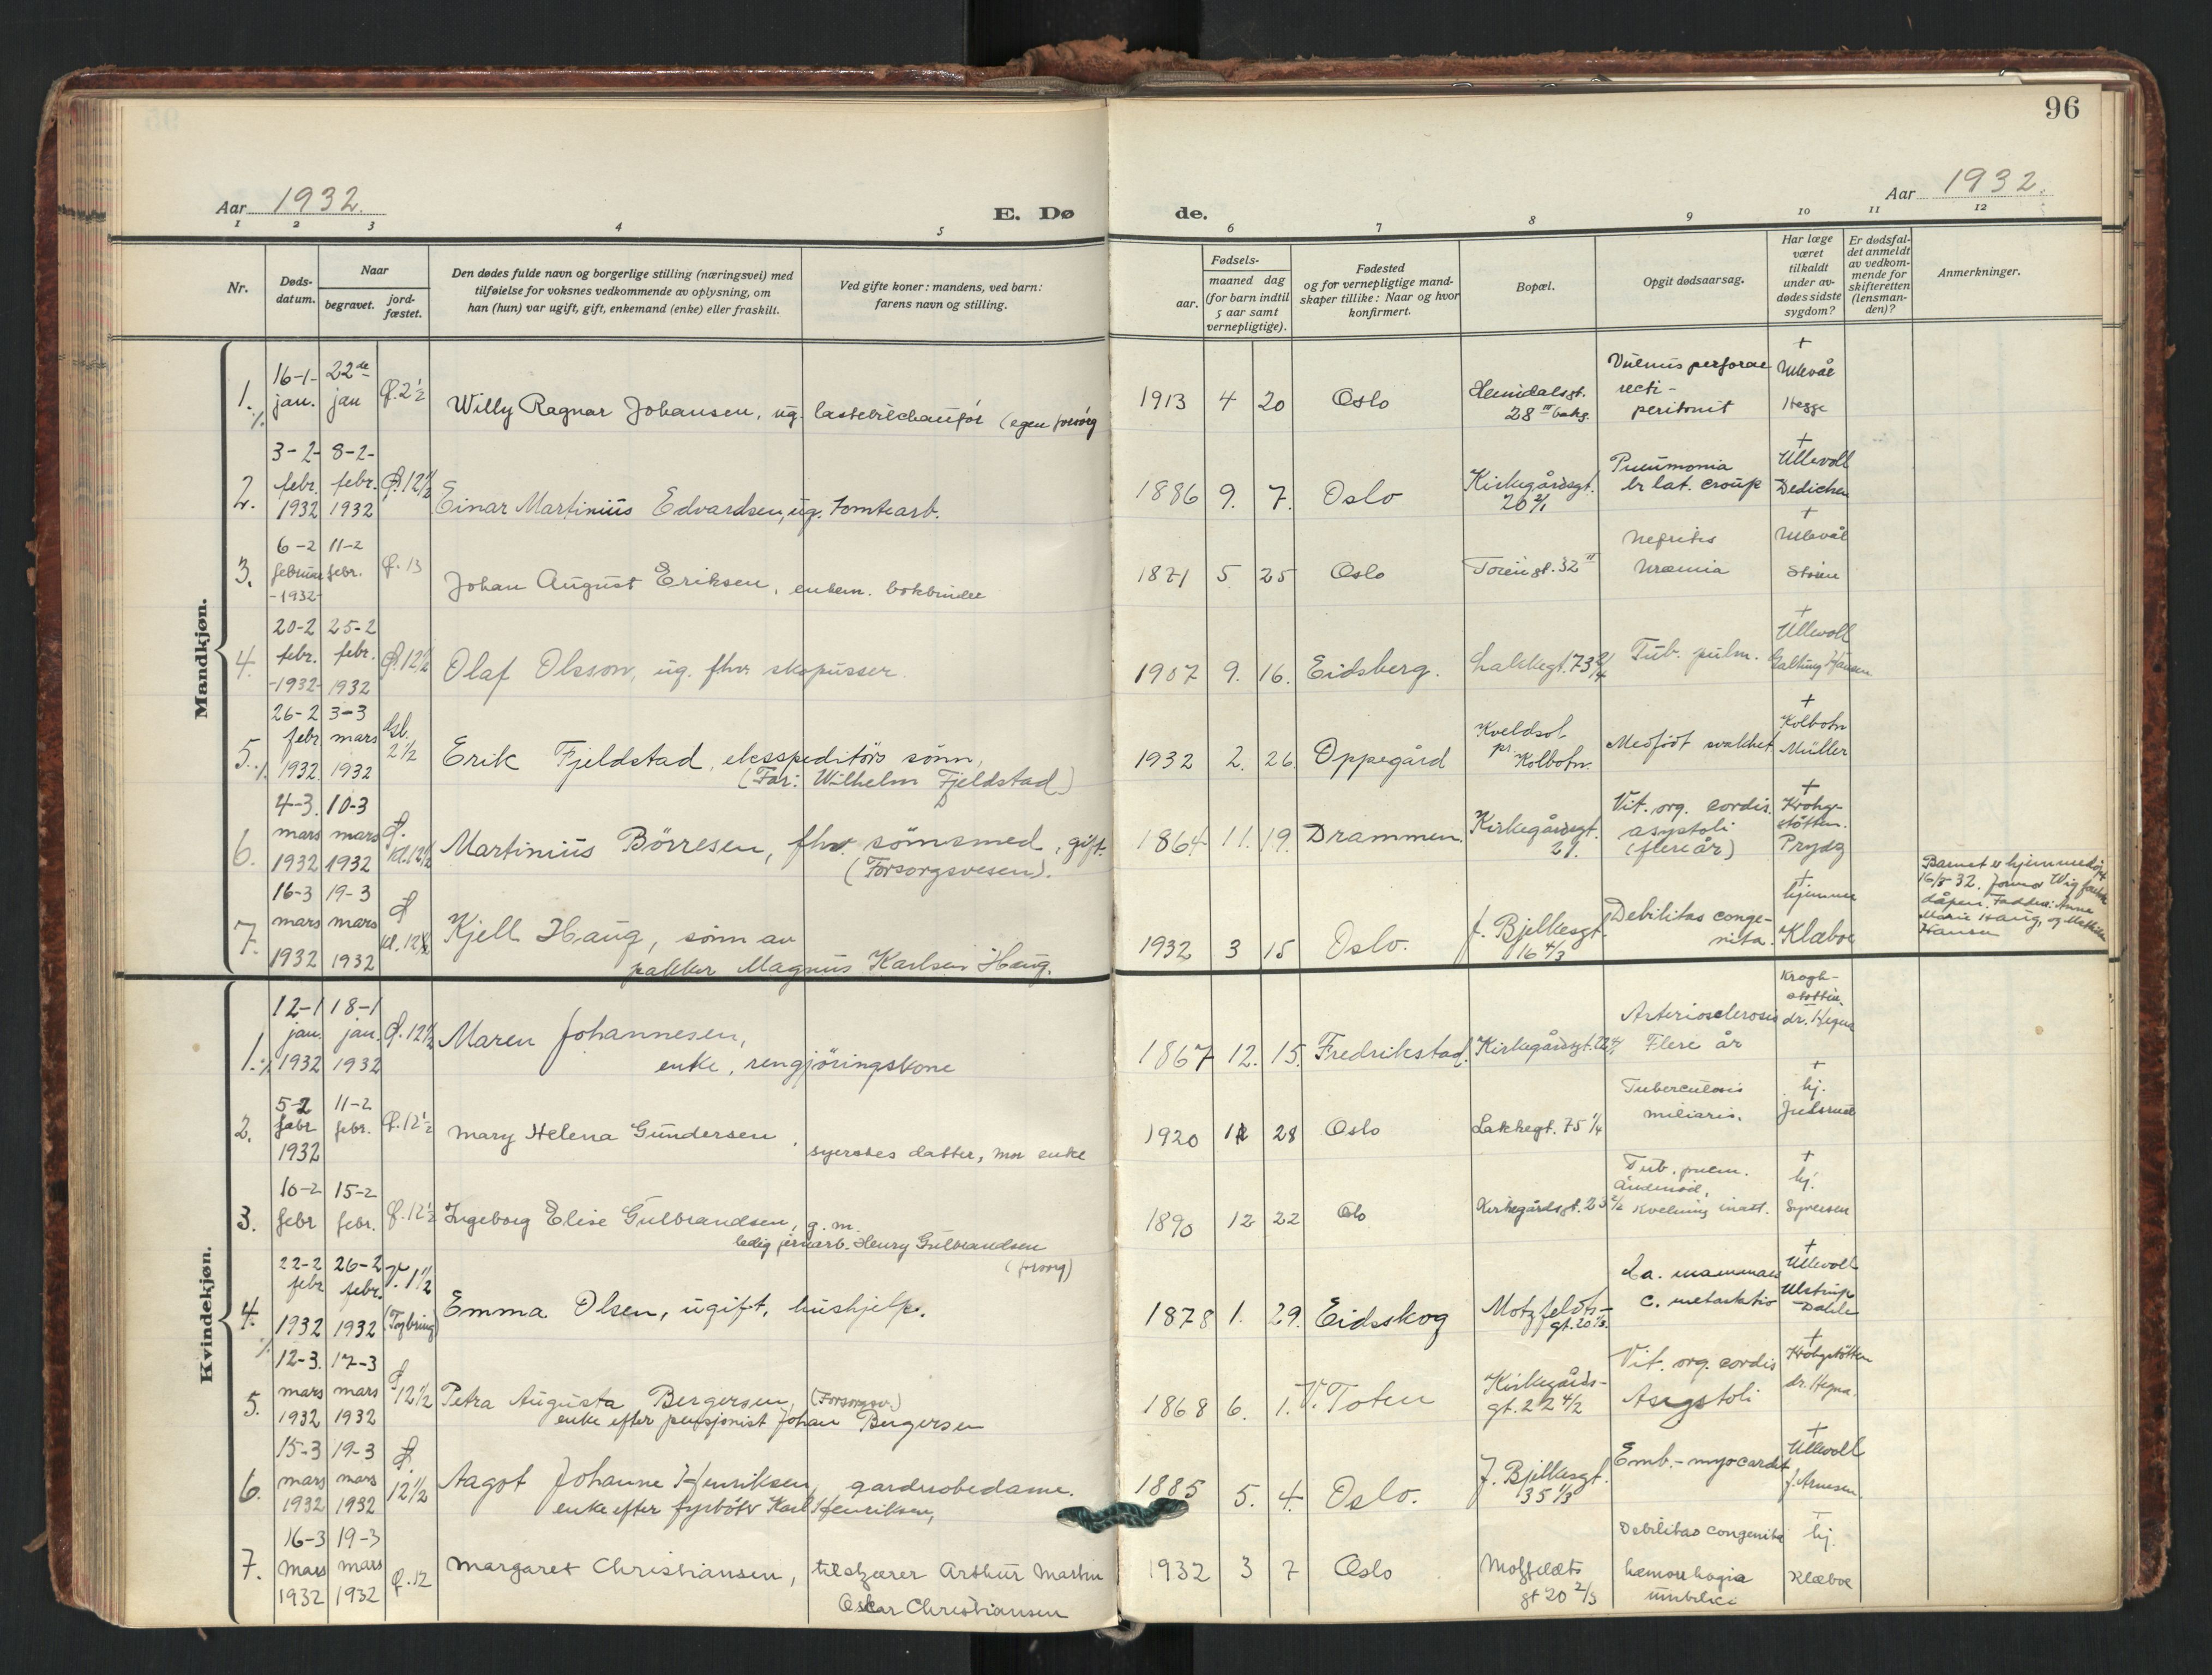 96
Aar 1932.
E. Dø
de.
Aar 1932.
1 2 3 4 5 6 7 8 9 10 11 12
Nr.
Døds-
datum.
Naar
begravet.
jord-
fæstet.
Den dødes fulde navn og borgerlige stilling (næringsvei) med
tilføielse for voksnes vedkommende av oplysning, om
han (hun) var ugift, gift, enkemand (enke) eller fraskilt.
Ved gifte koner: mandens, ved barn:
farens navn og stilling.
Fødsels-
aar.
maaned dag
(for barn indtil
5 aar samt
vernepligtige).
Fødested
og for vernepligtige mand-
skaper tillike: Naar og hvor
konfirmert.
Bopæl.
Opgit dødsaarsag.
Har læge
været
tilkaldt
under av-
dødes sidste
sygdom?
Er dødsfal-
det anmeldt
av vedkom-
mende for
skifteretten
(lensman-
den)?
Anmerkninger.
Mandkjøn.
1. 16-1- jan. 22de jan 2½
Willy Ragnar Johansen, ug. lastebilchauffør (egen forsørg
1913 4 20 Oslo Heimdalsgt. 28 III bakg.
Vulnus perforae
recti-
peritonit
+ Ullevål
Hegge
2. 3-2- febr. 1932 8-2- febr. 1932 12½
Einar Martinius Edvardsen, ug. tomtearb.
1886 9. 7. Oslo Kirkegårdsgt. 20 2/1
Pneumonia
br lat. croup
+ Ullevoll
Dedichen
3. 6-2 februar -1932- 11-2 febr. 13
Johan August Eriksen, enkem. bokbinder
1871 5 25 Oslo Toiengt. 32 II
Nefritis
Uræmia
+ Ullevål
Stoien
4. 20-2 febr. -1932- 25-2 febr. 1932 12½
Olaf Olsson, ug. fhv. skopusser.
1907 9. 16. Eidsberg. Lakkegt. 73 2/4
Tub. pulm.
+ Ullevoll
Galtung Hansen
5. 26-2 febr 1932. 3-3 mars 1932 2½
Erik Fjeldstad, ekspeditørs sønn,
(Far: Wilhelm Fjeldstad)
1932 2. 26. Oppegård Kveldsol pr. Kolbotn.
Medfödt svakhet
+ Kolbotn
Müller
6. 4-3. mars 1932 10-3 mars 1932 kl. 12½
Martinius Börresen, fhv. sömsmed, gift.
(Forsorgsvesen).
1864 11. 19. Drammen. Kirkegårdsgt. 21.
Vit. org. cordis.
asystoli
(flere år)
+ Krohg-
støtten.
Prydz
7. 16-3 mars 1932 19-3 mars 1932 kl. 12½
Kjell Haug, sönn av
pakker Magnus Karlsen Haug.
1932 3 15 Oslo. J. Bjelkesgt. 16 4/3
Debilitas conge-
nita.
+ hjemme
Klæboe
Barnet er hjemmedøpt
16/3 32. Jormor Wig
dåpen. Faddere: Anne
Marie Haug, og Mathilde
Hansen
Kvindekjøn.
1. 12-1 jan. 1932 18-1 jan. 1932 12½
Maren Johannesen,
enke, rengjöringskone
1867 12. 15. Fredrikstad. Kirkegårdsgt.
Arteriosclerosis
Flere år
Krogh-
støtten.
dr. Hegna
2. 5-2 febr 1932 11-2 febr. 12½
Mary Helena Gundersen, syerskes datter, mor enke
1920 12 28 Oslo Lakkegt. 75 1/4
Tuberculosis
miliaris.
+ hj.
3. 10-2 febr 15-2 febr. 12½
Ingeborg Elise Gulbrandsen, g. m.
ledig jernarb. Henry Gulbrandsen
(forsorg)
1890 12 22 Oslo Kirkegårdsgt. 23
Tub. pulm.
åndenöd,
kvelning
+ hj.
Syversen
4. 22-2 febr 1932 26-2 febr. 1932 V. 1½
Emma Olsen, ugift, hushjelp.
1878 1. 29. Eidsskog Motzfeldts-
gt. 20 1/3.
Ca. mammae
c. metastatis
+ Ullevoll
Ulstrup
-Dahle
5. 12-3. mars 1932 17-3 mars 1932 12½
Petra Augusta Bergersen, (Forsorgsv.)
enke efter pensjonist Johan Bergersen
1868 6. 1. V. Toten Kirkegårds-
gt. 22 4/2
Vit. org. cordis
Asystoli
+ Krohgstötten
dr. Hegna.
6. 15-3 mars 1932 19-3 mars 1932 12½
Aagot Johanne Henriksen, garderobedame.
enke efter fyrböter Karl Henriksen,
1885 5. 4. Oslo. J. Bjelkesgt. 35 1/3
Emb.-myocardit
+ Ullevoll
J. Arnesen.
7. 16-3 mars 1932 19-3 mars 1932 12
Margaret Christiansen, tilskjærer Arthur Martin
Oskar Christiansen
1932 3 7 Oslo Motzfeldts
gt 20 2/3
Debilitas congenita
hæmorrhagia
umbilici
+ hj.
Klæboe